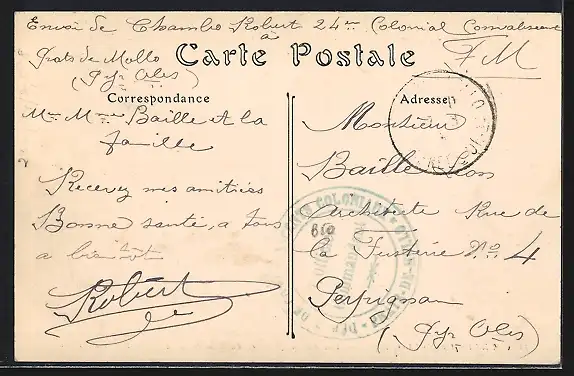 Envoi de Chambo Robert 24me Colonial Convalescent
à
Prats de Mollo
(Pyr Ories)
F M
Carte Postale
Correspondance
Adresse
Mr Mme Baille et la
famille
Recevez mes amitiés
Bonne santé, a tous
a bientôt
Robert
Monsieur
Baille Léon
Architecte Rue de
la Fusterie No 4
Perpignan
(Pyr Ories)
COLONIAL